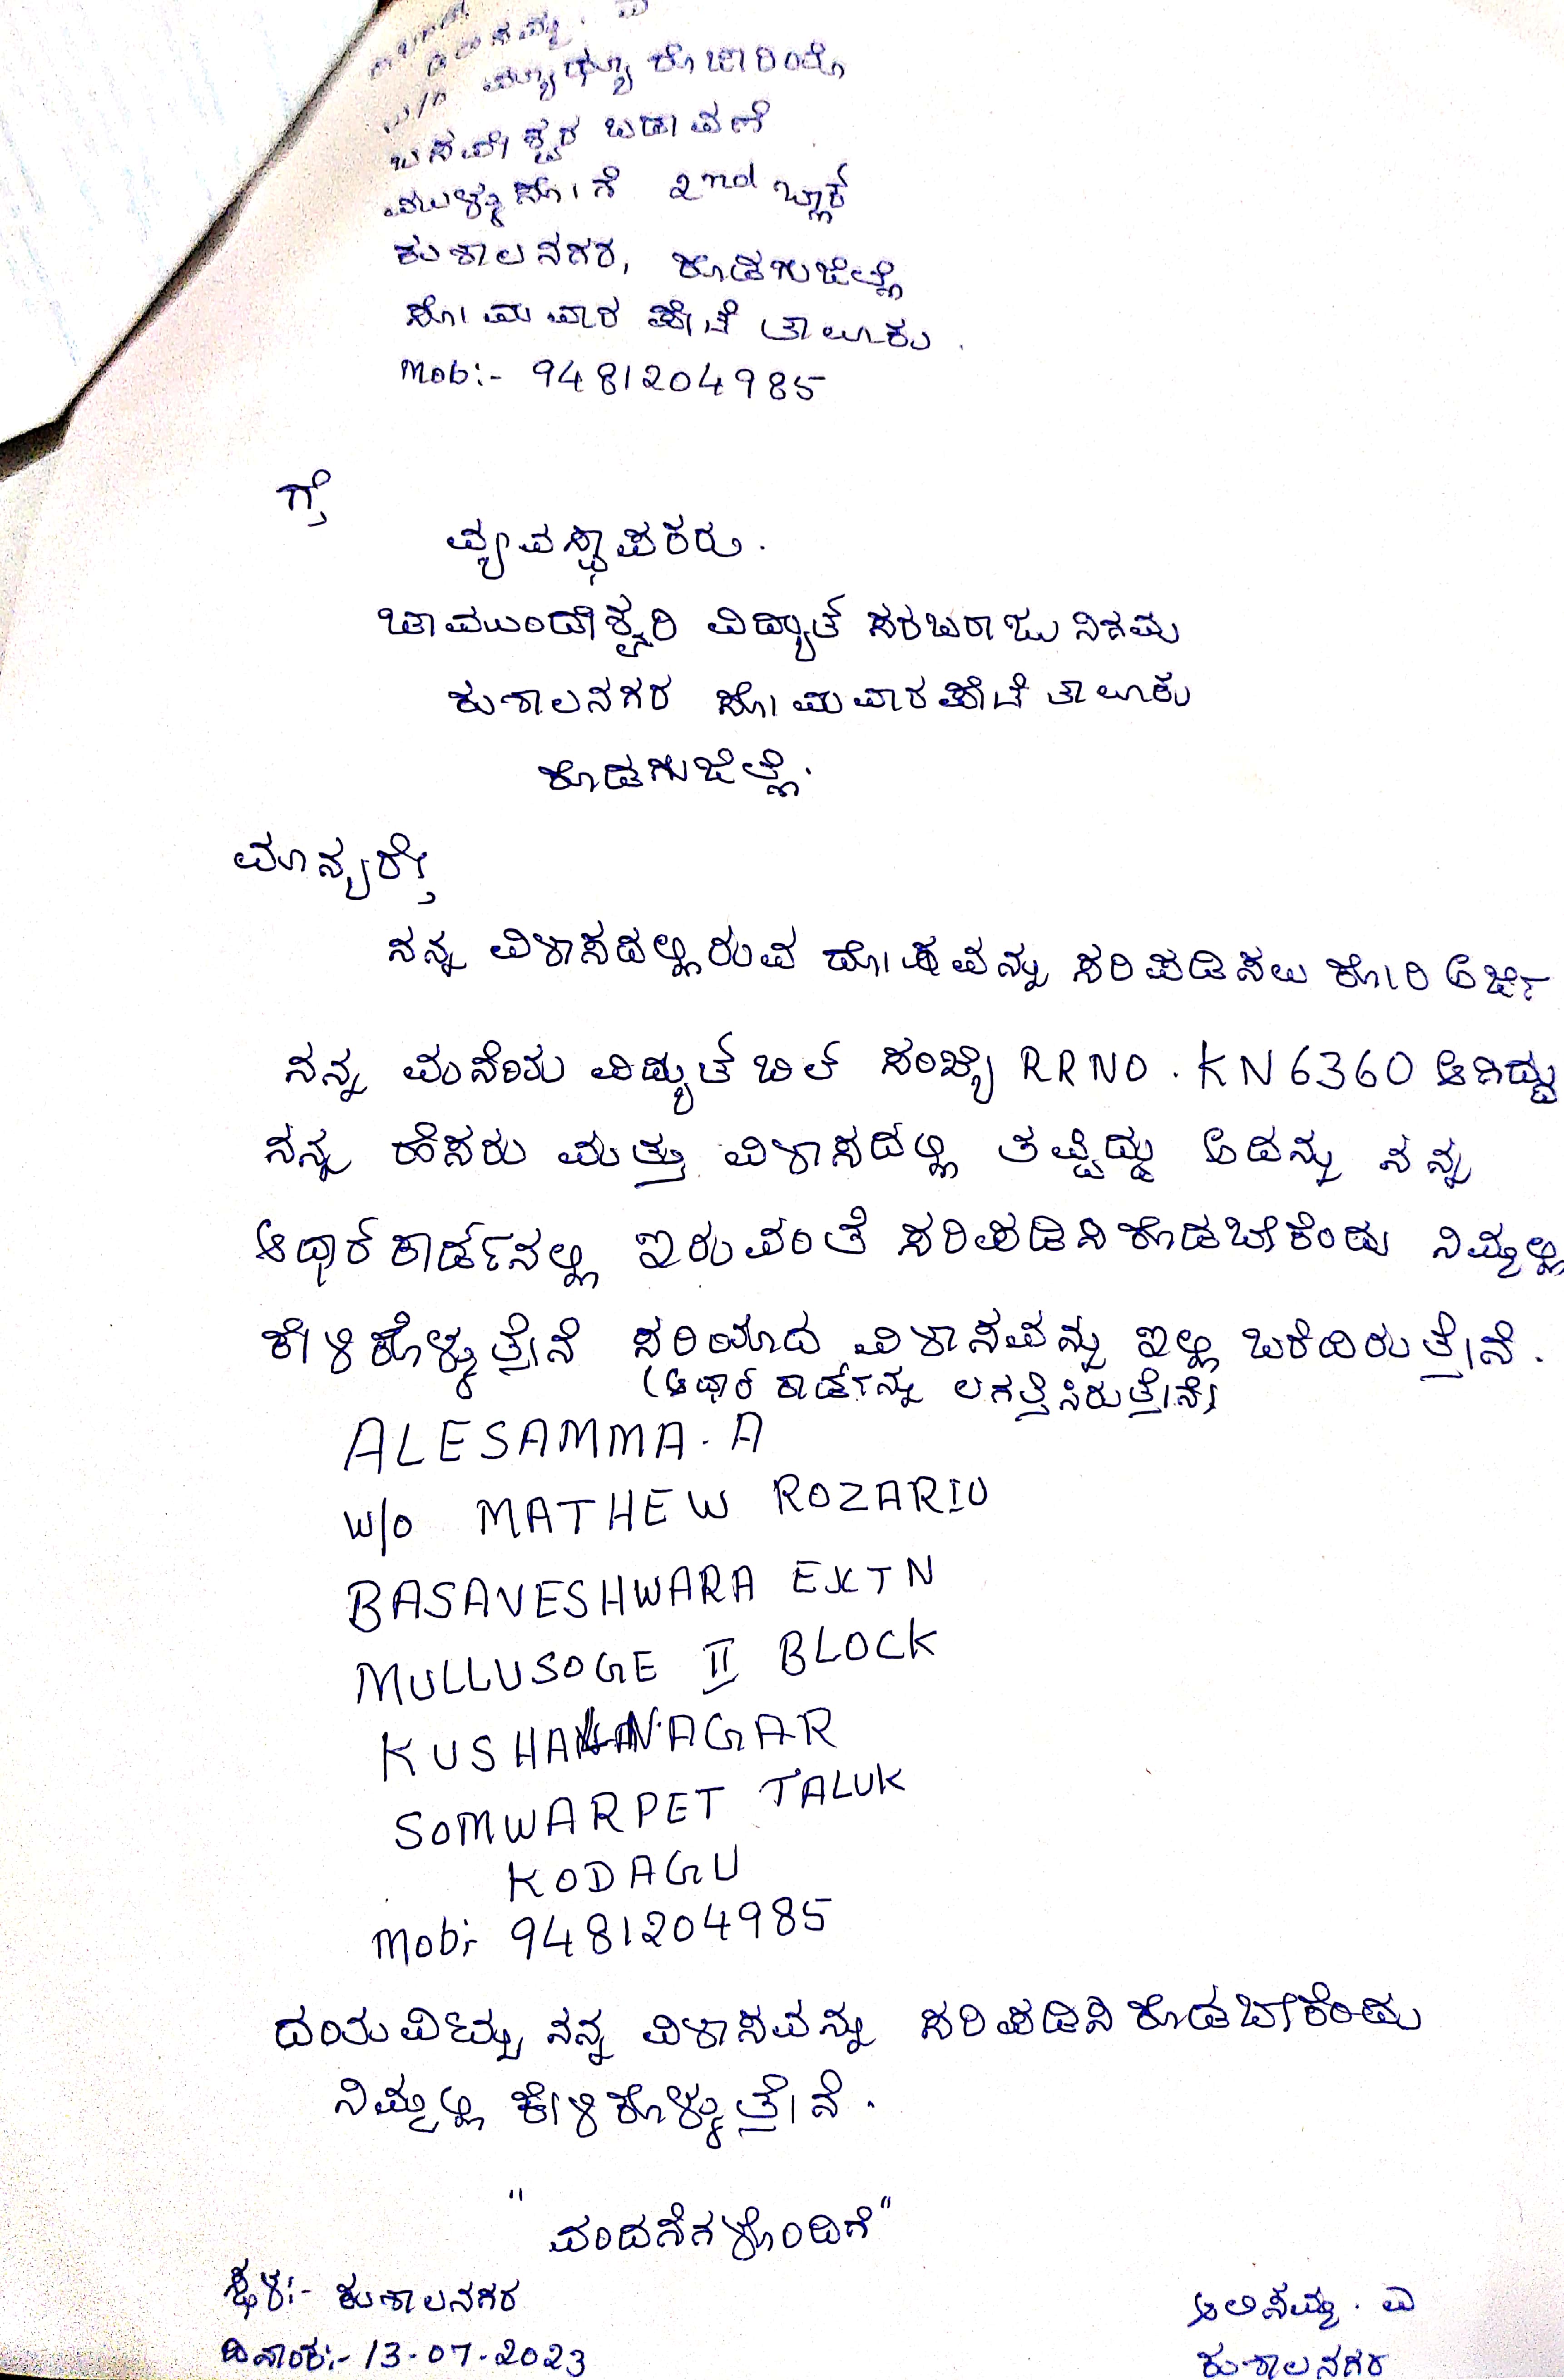 ಅಲಸಮ್ಮ . ಎ
w/o ಮ್ಯಾಥ್ಯೂ ರೊಜಾರಿಯೊ
ಬಸವೇಶ್ವರ ಬಡಾವಣೆ
ಮುಳ್ಳುಸೋಗೆ 2nd ಬ್ಲಾಕ್
ಕುಶಾಲನಗರ, ಕೊಡಗುಜಿಲ್ಲೆ
ಸೋಮವಾರ ಪೇಟೆ ತಾಲೂಕು .
Mob:- 9481204985
ಗೆ
ವ್ಯವಸ್ಥಾಪಕರು.
ಚಾಮುಂಡೇಶ್ವರಿ ವಿದ್ಯುತ್ ಸರಬರಾಜು ನಿಗಮ
ಕುಶಾಲನಗರ ಸೋಮವಾರಪೇಟೆ ತಾಲೂಕು
ಕೊಡಗುಜಿಲ್ಲೆ.
ಮಾನ್ಯರೇ
ನನ್ನ ವಿಳಾಸದಲ್ಲಿರುವ ದೋಷವನ್ನು ಸರಿಪಡಿಸಲು ಕೋರಿ ಅರ್ಜಿ
ನನ್ನ ಮನೆಯ ವಿದ್ಯುತ್ ಬಿಲ್ ಸಂಖ್ಯೆ RRNO . KN6360 ಆಗಿದ್ದು
ನನ್ನ ಹೆಸರು ಮತ್ತು ವಿಳಾಸದಲ್ಲಿ ತಪ್ಪಿದ್ದು ಅದನ್ನು ನನ್ನ
ಆಧಾರ್ ಕಾರ್ಡ್‌ನಲ್ಲಿ ಇರುವಂತೆ ಸರಿಪಡಿಸಿಕೊಡಬೇಕೆಂದು ನಿಮ್ಮಲ್ಲಿ
ಕೇಳಿಕೊಳ್ಳುತ್ತೇನೆ ಸರಿಯಾದ ವಿಳಾಸವನ್ನು ಇಲ್ಲಿ ಬರೆದಿರುತ್ತೇನೆ .
(ಆಧಾರ್ ಕಾರ್ಡನ್ನು ಲಗತ್ತಿಸಿರುತ್ತೇನೆ)
ALESAMMA. A
W/O MATHEW ROZARIO
BASAVESHWARA EXTN
MULLUSOGE II BLOCK
KUSHALNAGAR
SOMWARPET TALUK
KODAGU
Mob:- 9481204985
ದಯವಿಟ್ಟು ನನ್ನ ವಿಳಾಸವನ್ನು ಸರಿಪಡಿಸಿಕೊಡಬೇಕೆಂದು
ನಿಮ್ಮಲ್ಲಿ ಕೇಳಿಕೊಳ್ಳುತ್ತೇನೆ .
"ವಂದನೆಗಳೊಂದಿಗೆ"
ಸ್ಥಳ:- ಕುಶಾಲನಗರ
ದಿನಾಂಕ:- 13-07-2023
ಅಲಿಸಮ್ಮ . ಎ
ಕುಶಾಲನಗರ